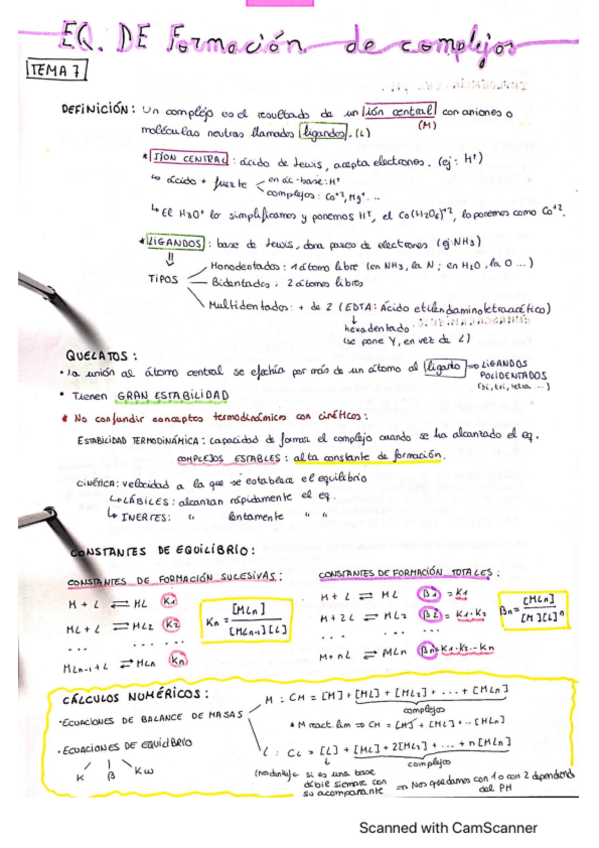 EQ. DE Formación de complejos
TEMA 7
DEFINICIÓN: Un complejo es el resultado de un ión central con aniones o
(M)
moléculas neutras llamados ligandos. (L)
* IÓN CENTRAL: ácido de Lewis, acepta electrones. (ej: H⁺)
↳ ácido + fuerte
en ác-base: H⁺
complejos: Co⁺², Mg⁺ ...
↳ El H₃O⁺ lo simplificamos y ponemos H⁺, el Co(H₂O)₆⁺², lo ponemos como Co⁺².
* LIGANDOS: base de Lewis, dona pares de electrones (ej NH₃)
⇓
TIPOS
Monodentados: 1 átomo libre (en NH₃, la N; en H₂O, la O ...)
Bidentados: 2 átomos libres
Multidentados: + de 2 (EDTA: Ácido etilendiaminotetraacético)
↓
hexadentado
(se pone Y, en vez de L)
QUELATOS:
• La unión al átomo central se efectúa por más de un átomo al ligando ⇒ LIGANDOS
POLIDENTADOS
(bi, tri, tetra ...)
• Tienen GRAN ESTABILIDAD
* No confundir conceptos termodinámicos con cinéticos:
ESTABILIDAD TERMODINÁMICA: capacidad de formar el complejo cuando se ha alcanzado el eq.
COMPLEJOS ESTABLES: alta constante de formación.
CINÉTICA: velocidad a la que se establece el equilibrio
↳ LÁBILES: alcanzan rápidamente el eq.
↳ INERTES: " lentamente " "
CONSTANTES DE EQUILIBRIO:
CONSTANTES DE FORMACIÓN SUCESIVAS:
M + L ⇌ ML K1
ML + L ⇌ ML2 K2
... ...
MLn-1 + L ⇌ MLn Kn
Kn = [MLn] / [MLn-1][L]
CONSTANTES DE FORMACIÓN TOTALES:
M + L ⇌ ML β1 = K1
M + 2L ⇌ ML2 β2 = K1·K2
... ... ...
M + nL ⇌ MLn βn = K1·K2...Kn
Bn = [MLn] / [M][L]ⁿ
CÁLCULOS NUMÉRICOS:
• ECUACIONES DE BALANCE DE MASAS
M : CM = [M] + [ML] + [ML2] + ... + [MLn]
complejos
* M react. lim ⇒ CM = [M] + [ML] + .. [MLn]
L : CL = [L] + [ML] + 2[ML2] + ... + n[MLn]
complejos
• ECUACIONES DE EQUILIBRIO
K β Kw
si es una base
débil siempre con
su acompañante
⇒ Nos quedamos con 1 o con 2 dependiendo
del PH
Scanned with CamScanner